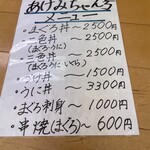 あけみちゃん号
メニュー
・まぐろ丼〜2500円
・二色丼〜2500円
(まぐろ・うに)
・三色丼〜2500円
(まぐろ・うに・いくら)
・づけ丼〜1500円
・うに丼〜3300円
・まぐろ刺身〜1000円
・串焼(まぐろ)〜600円